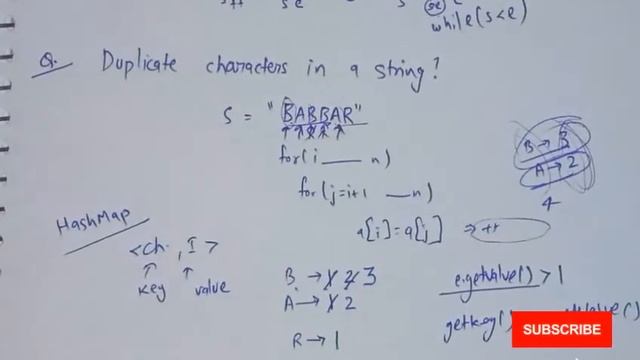 se
while(s<e)
Q. Duplicate characters in a string?
S = "BABBAR"
for(i ___ n)
for(j=i+1 ___ n)
a[i]=a[j] ⇒ ++
B → 3
A → 2
4
HashMap
<ch, I>
↑ ↑
key value
B → 1 2 3
A → 1 2
R → 1
e.getvalue() > 1
getkey()
SUBSCRIBE